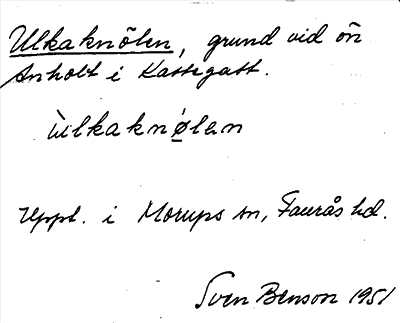 Ulkaknölen, grund vid ön
Anholt i Kattegatt.
ùlkaknø̠lan
Uppt. i Morups sn, Faurås hd.
Sven Benson 1951